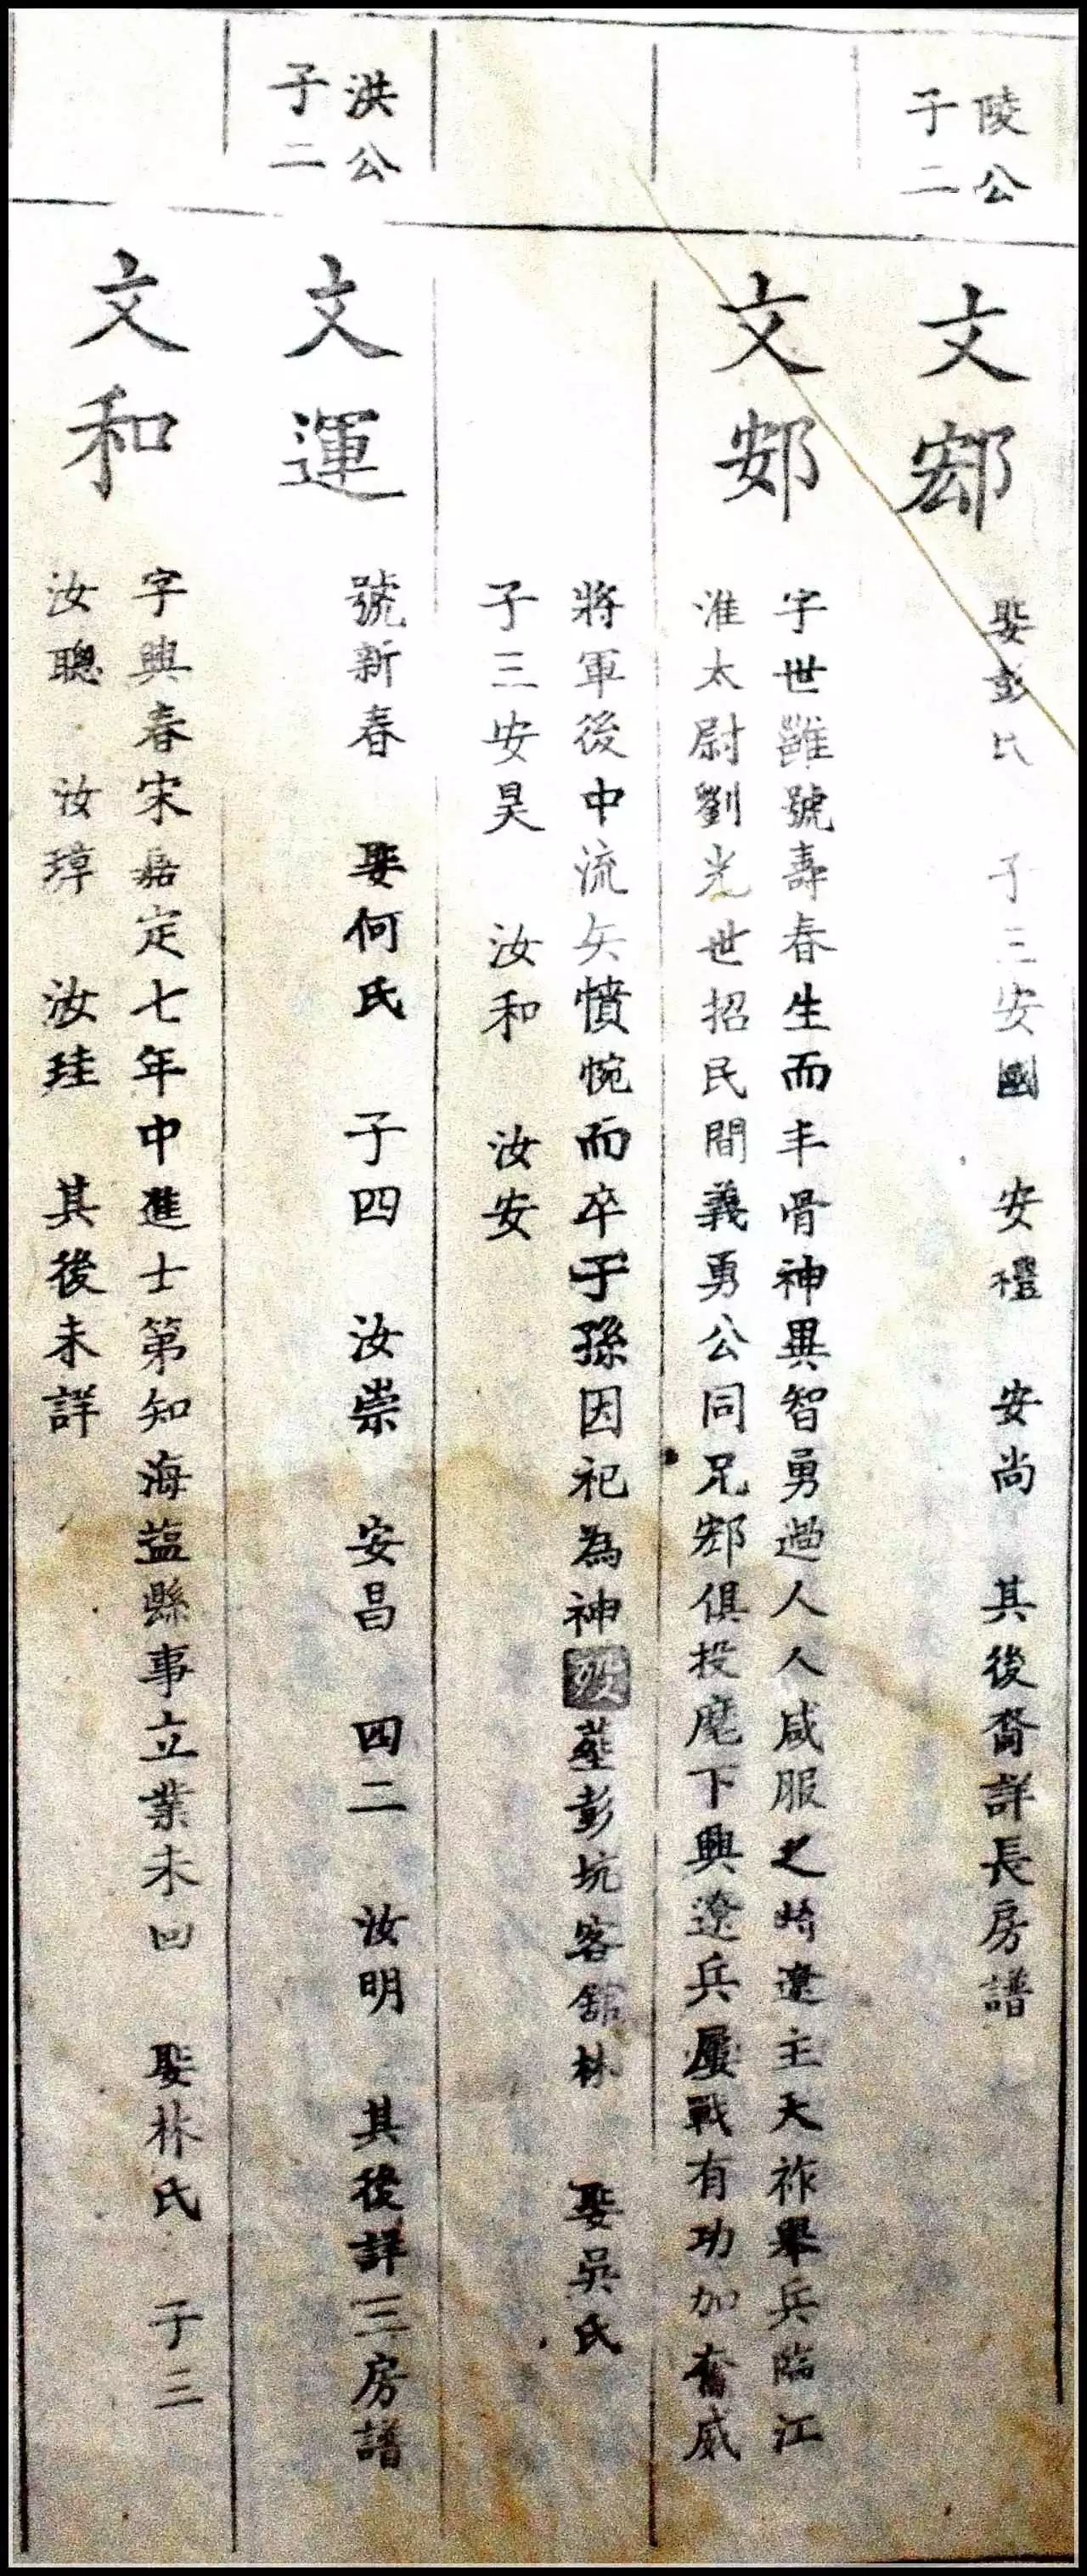 陵公
子二
文鄢
娶彭氏 子三安國 安禮 安尚 其後裔詳長房譜
文郊
字世雖號壽春生而丰骨神異智勇過人人咸服之時遼主天祚舉兵臨江
淮太尉劉光世招民間義勇公同兄俱投麾下興遼兵屢戰有功加奮威
將軍後中流矢憤惋而卒子孫因祀為神歿葬彭坑客舘林 娶吳氏
子三安昊 汝和 汝安
洪公
子二
文運
號新春 娶何氏 子四 汝崇 安昌 四二 汝明 其後詳三房譜
文和
字興春宋嘉定七年中進士第知海盐縣事立業未回 娶林氏 子三
汝聰 汝璋 汝珪 其後未詳